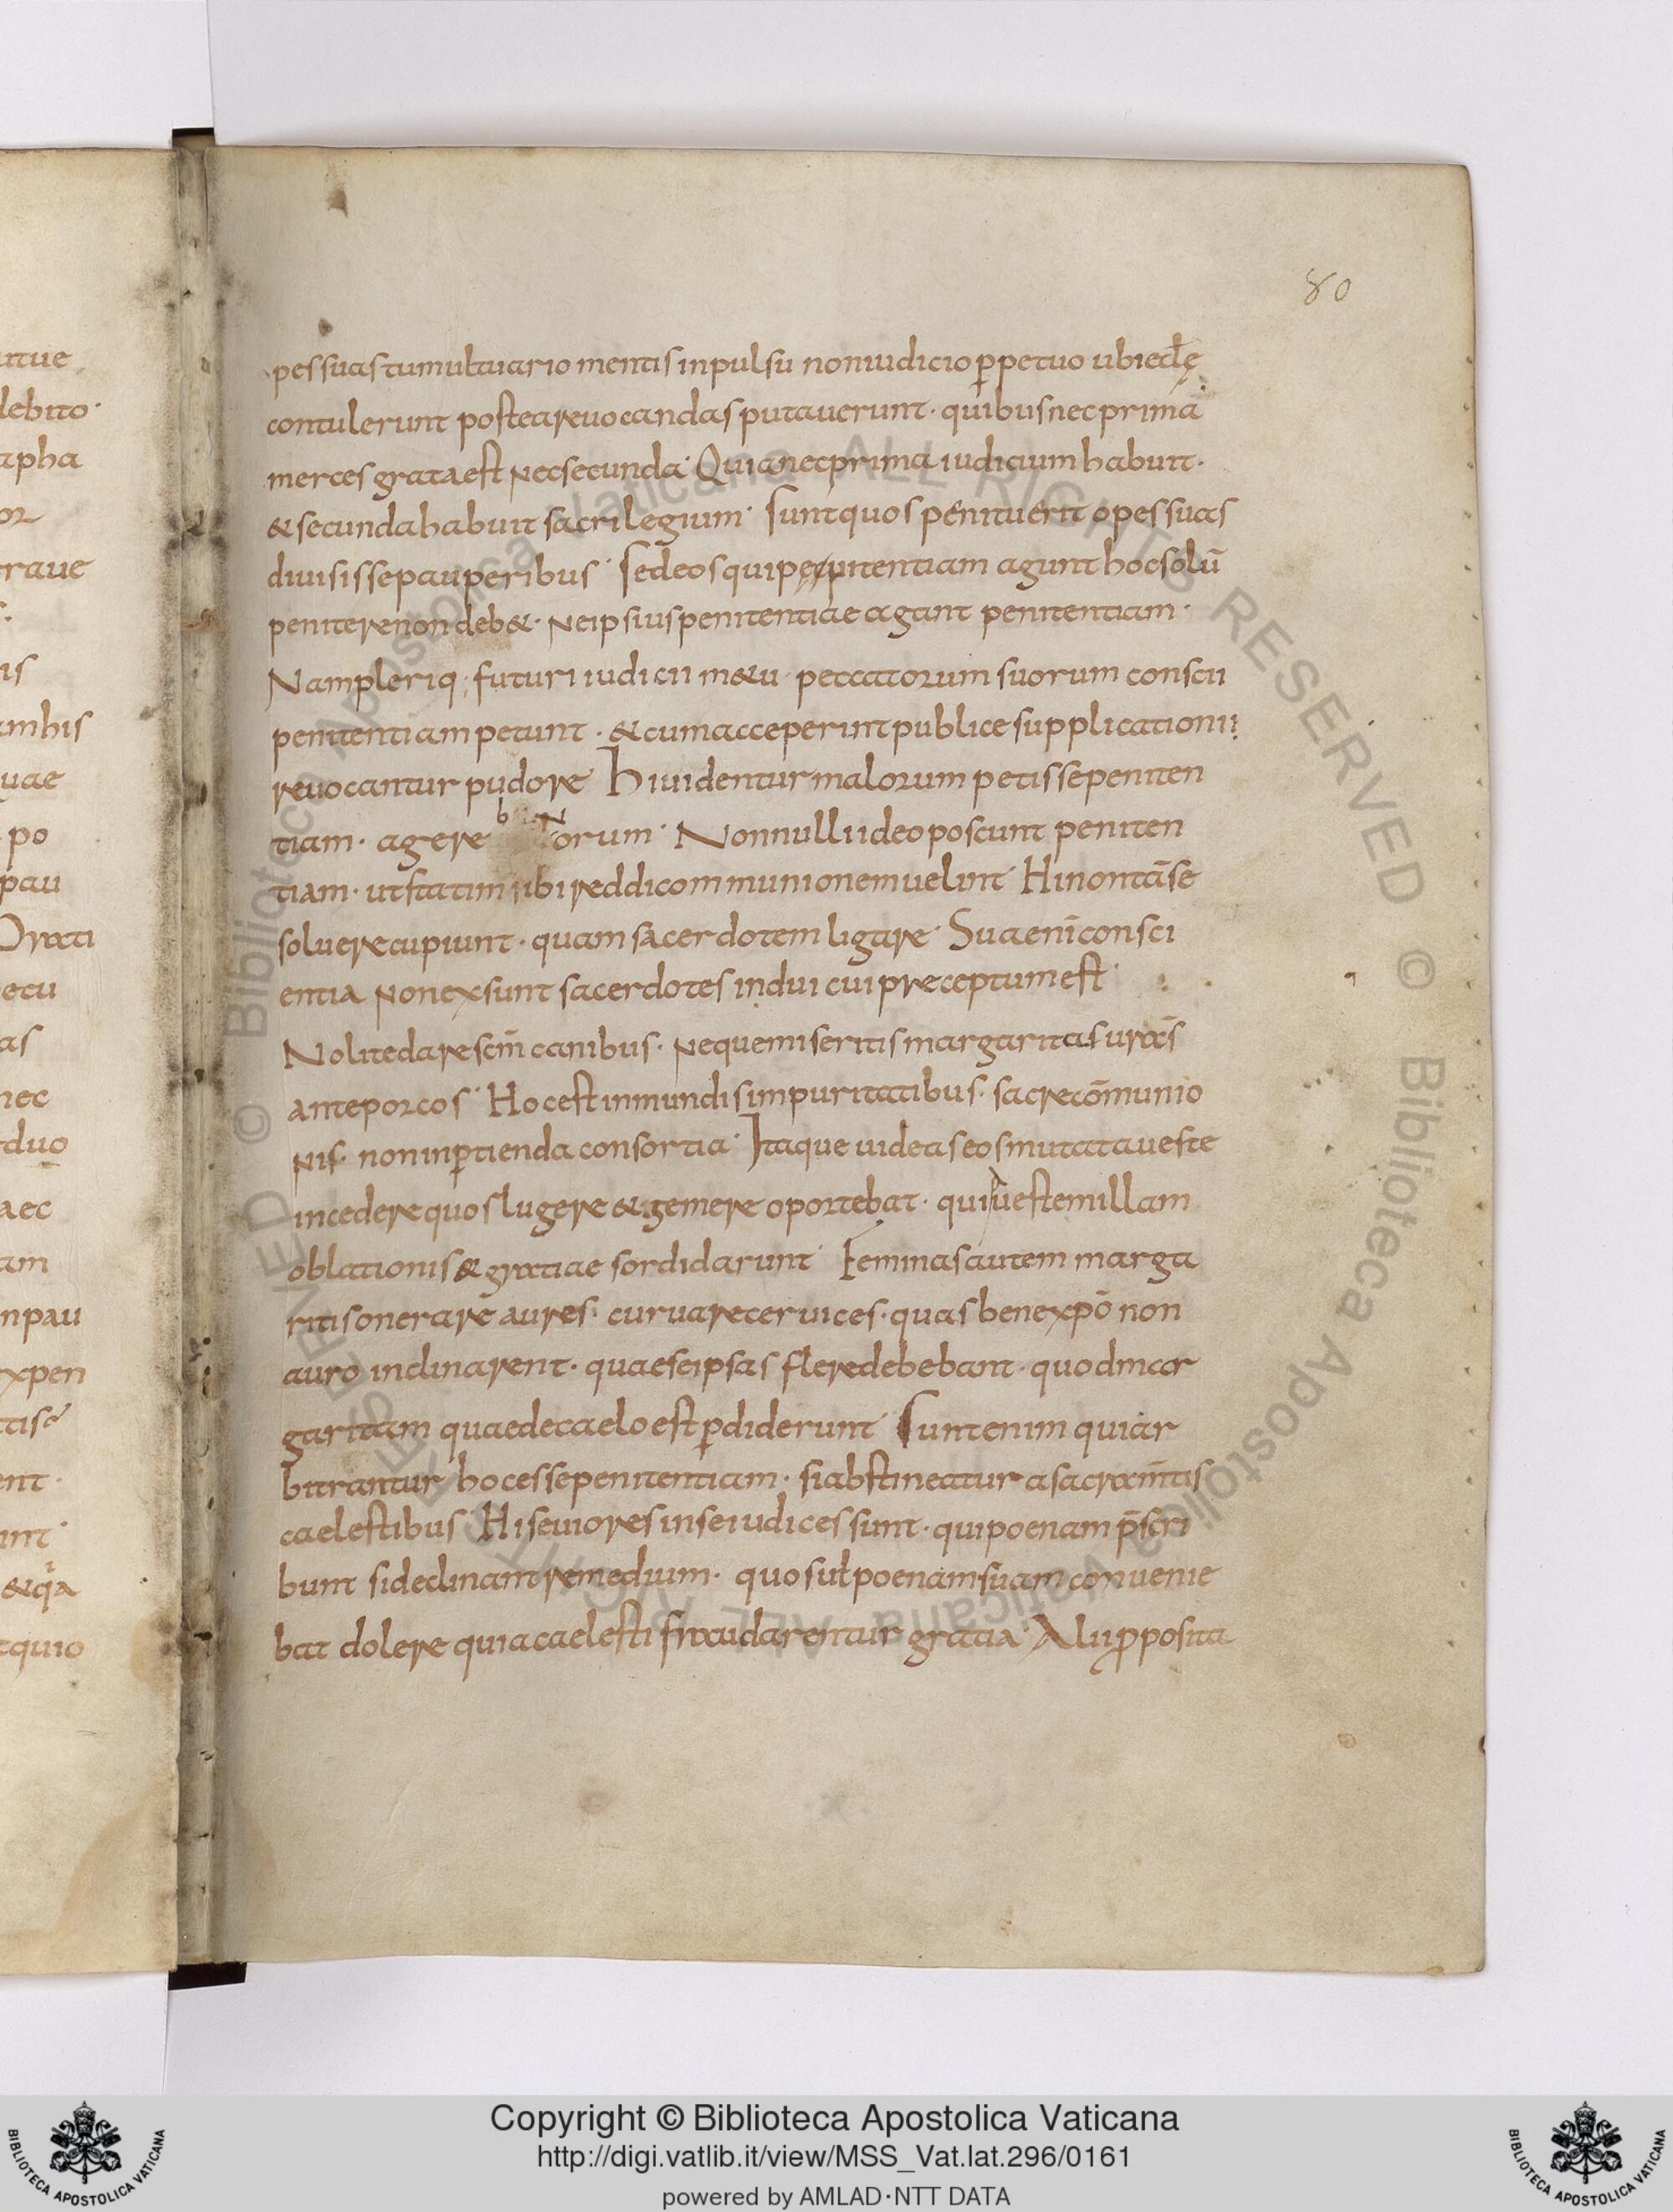 utue
debito·
apha
or
raue
s·
is
amhis
uae
po
pau
Orati
ecu
as
nec
duo
aec
am
npau
xpen
tis
ent·
unt
&qa
tquio
80
pessuas tumultuario mentis inpulsu non iudicio ꝑpetuo ubi eclę
contulerunt postea reuocandas putauerunt· quibus nec prima
merces grata est nec secunda· Quia nec prima iudicium habuit·
& secunda habuit sacrilegium· Sunt quos penituerit opes suas
diuisisse pauperibus· Sed eos qui penitentiam agunt hoc solū
penitere non deb&· ne ipsius penitentiae agant penitentiam·
Nam pleriq; futuri iudicii m&u· peccatorum suorum conscii
penitentiam petunt· & cum acceperint publice supplicationis
reuocantur pudore Hi uidentur malorum petisse peniten
tiam· agere boNorum· Nonnulli ideo poscunt peniten
tiam· ut statim sibi reddi communionem uelint Hi non tā se
soluere cupiunt· quam sacerdotem ligare· Sua enī consci
entia non exsunt sacerdotes indui cui preceptum est·
Nolite dare scm̄ canibus· neque miseritis margaritas uras̄
ante porcos· Hoc est inmundis impuritatibus· sacre cōmunio
nis· non inꝑtienda consortia· Itaque uideas eos mutata ueste
incedere quos lugere & gemere oportebat· qui uestem illam
oblationis & gratiae sordidarunt· Feminas autem marga
ritis onerare aures· curuare ceruices· quas bene xpō non
auro inclinarent· quae se ipsas flere debebant· quod mar
garitam quae de caelo est ꝑdiderunt Sunt enim qui ar
bitrantur hoc esse penitentiam· si abstineatur a sacram̄tis
caelestibus· Hi seuiores in se iudices sunt· qui poenam p̄scri
bunt si declinant remedium· quos uł poenam suam conuenie
bat dolere quia caelesti fraudarentur gratia· Alii ꝓposita
© Biblioteca Apostolica Vaticana ALL RIGHTS RESERVED © Biblioteca Apostolica Vaticana ALL RIGHTS RESERVED
Copyright © Biblioteca Apostolica Vaticana
http://digi.vatlib.it/view/MSS_Vat.lat.296/0161
powered by AMLAD·NTT DATA
BIBLIOTECA APOSTOLICA VATICANA
BIBLIOTECA APOSTOLICA VATICANA